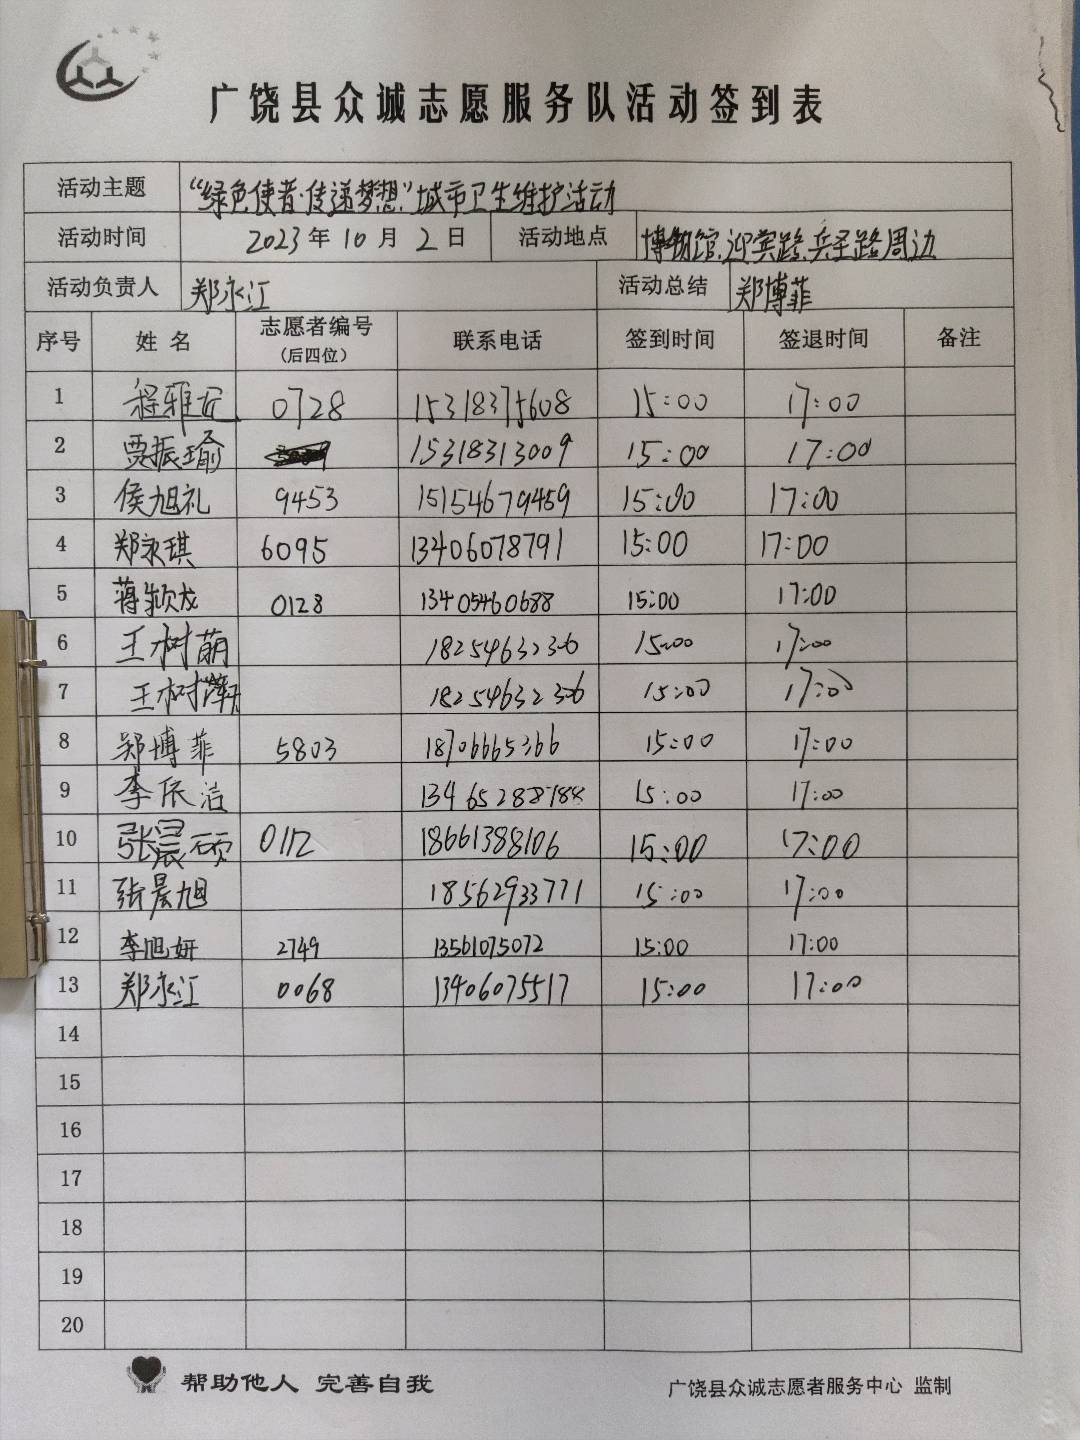 广饶县众诚志愿服务队活动签到表
活动主题 “绿色使者·传递梦想”城市卫生维护活动
活动时间 2023年10月2日 活动地点 博物馆、迎宾路、兵圣路周边
活动负责人 郑永江 活动总结 郑博菲
序号 姓名 志愿者编号（后四位） 联系电话 签到时间 签退时间 备注
1 程雅 0728 15318375608 15:00 17:00
2 贾振瑜 15318313009 15:00 17:00
3 侯旭礼 9453 15154679459 15:00 17:00
4 郑永琪 6095 13406078791 15:00 17:00
5 蒋颖龙 0128 13405460688 15:00 17:00
6 王树萌 18254632306 15:00 17:00
7 王树 18254632306 15:00 17:00
8 郑博菲 5803 18706665366 15:00 17:00
9 李依洁 15:00 17:00
10 张晨硕 0112 18661388106 15:00 17:00
11 张晨旭 18562933771 15:00 17:00
12 李旭妍 2749 13561075072 15:00 17:00
13 郑永江 0068 13406075517 15:00 17:00
14
15
16
17
18
19
20
帮助他人 完善自我
广饶县众诚志愿者服务中心 监制